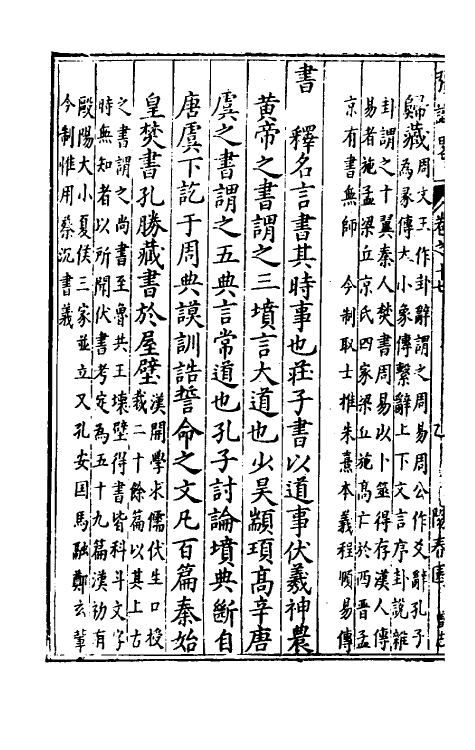 歸藏周文王作卦辭謂之周易周公作爻辭孔子
為彖傳大小象傳繫辭上下文言序卦說雜
卦謂之十翼秦人焚書周易以卜筮得存漢人傳
易者施孟梁丘京氏四家梁丘施高亡於西晋孟
京有書無師　今制取士惟朱熹本義程頤易傳
書　釋名言書其時事也莊子書以道事伏羲神農
黃帝之書謂之三墳言大道也少昊顓頊高辛唐
虞之書謂之五典言常道也孔子討論墳典斷自
唐虞下訖于周典謨訓誥誓命之文凡百篇秦始
皇焚書孔勝藏書於屋壁漢開學求儒伏生口授
裁二十餘篇以其上古
之書謂之尚書至魯共王壊壁得書皆科斗文字
時無知者以所聞伏書考定為五十九篇漢初有
歐陽大小夏侯三家並立又孔安国馬融鄭玄輩
今制惟用蔡沉書義